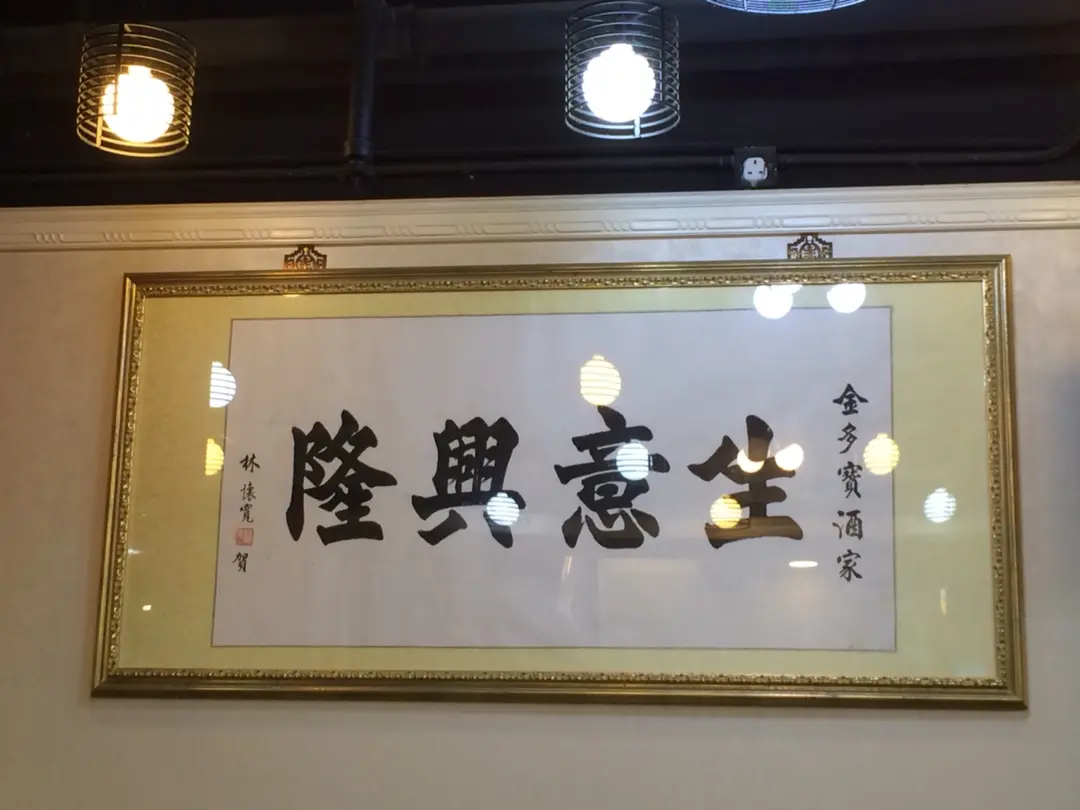 金多寶酒家
生意興隆
林懐寬
賀